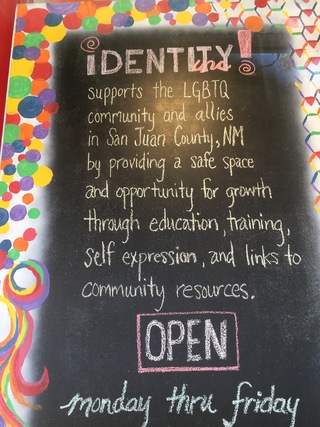 iDENTITY inc!
supports the LGBTQ
community and allies
in San Juan County, NM
by providing a safe space
and opportunity for growth
through education, training,
self expression, and links to
community resources.
OPEN
monday thru friday